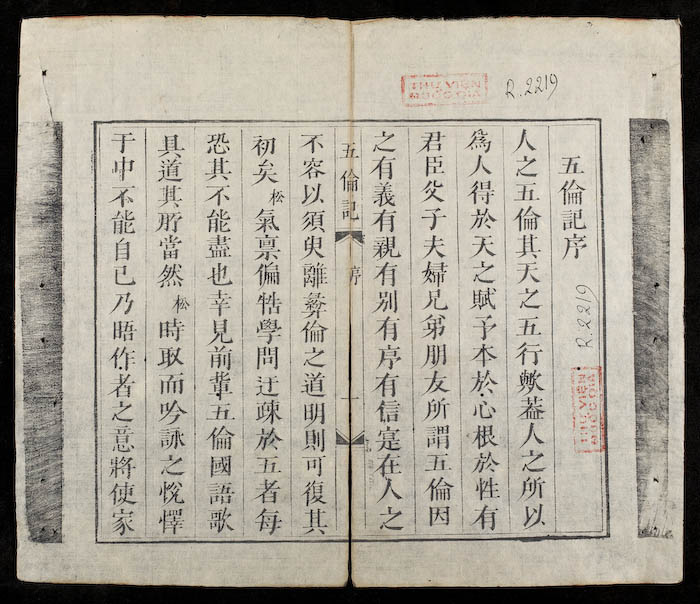 THƯ VIỆN
QUỐC GIA
R.2219
五倫記序
人之五倫其天之五行歟葢人之所以
爲人得於天之賦予本於心根於性有
君臣父子夫婦兄弟朋友所謂五倫因
之有義有親有別有序有信寔在人之
五倫記
序
一
不容以須臾離彜倫之道明則可復其
初矣松氣禀偏牿學問迂疎於五者每
恐其不能盡也幸見前輩五倫國語歌
具道其所當然松時取而吟詠之悅懌
于中不能自已乃晤作者之意將使家
R.2219
THƯ VIỆN
QUỐC GIA